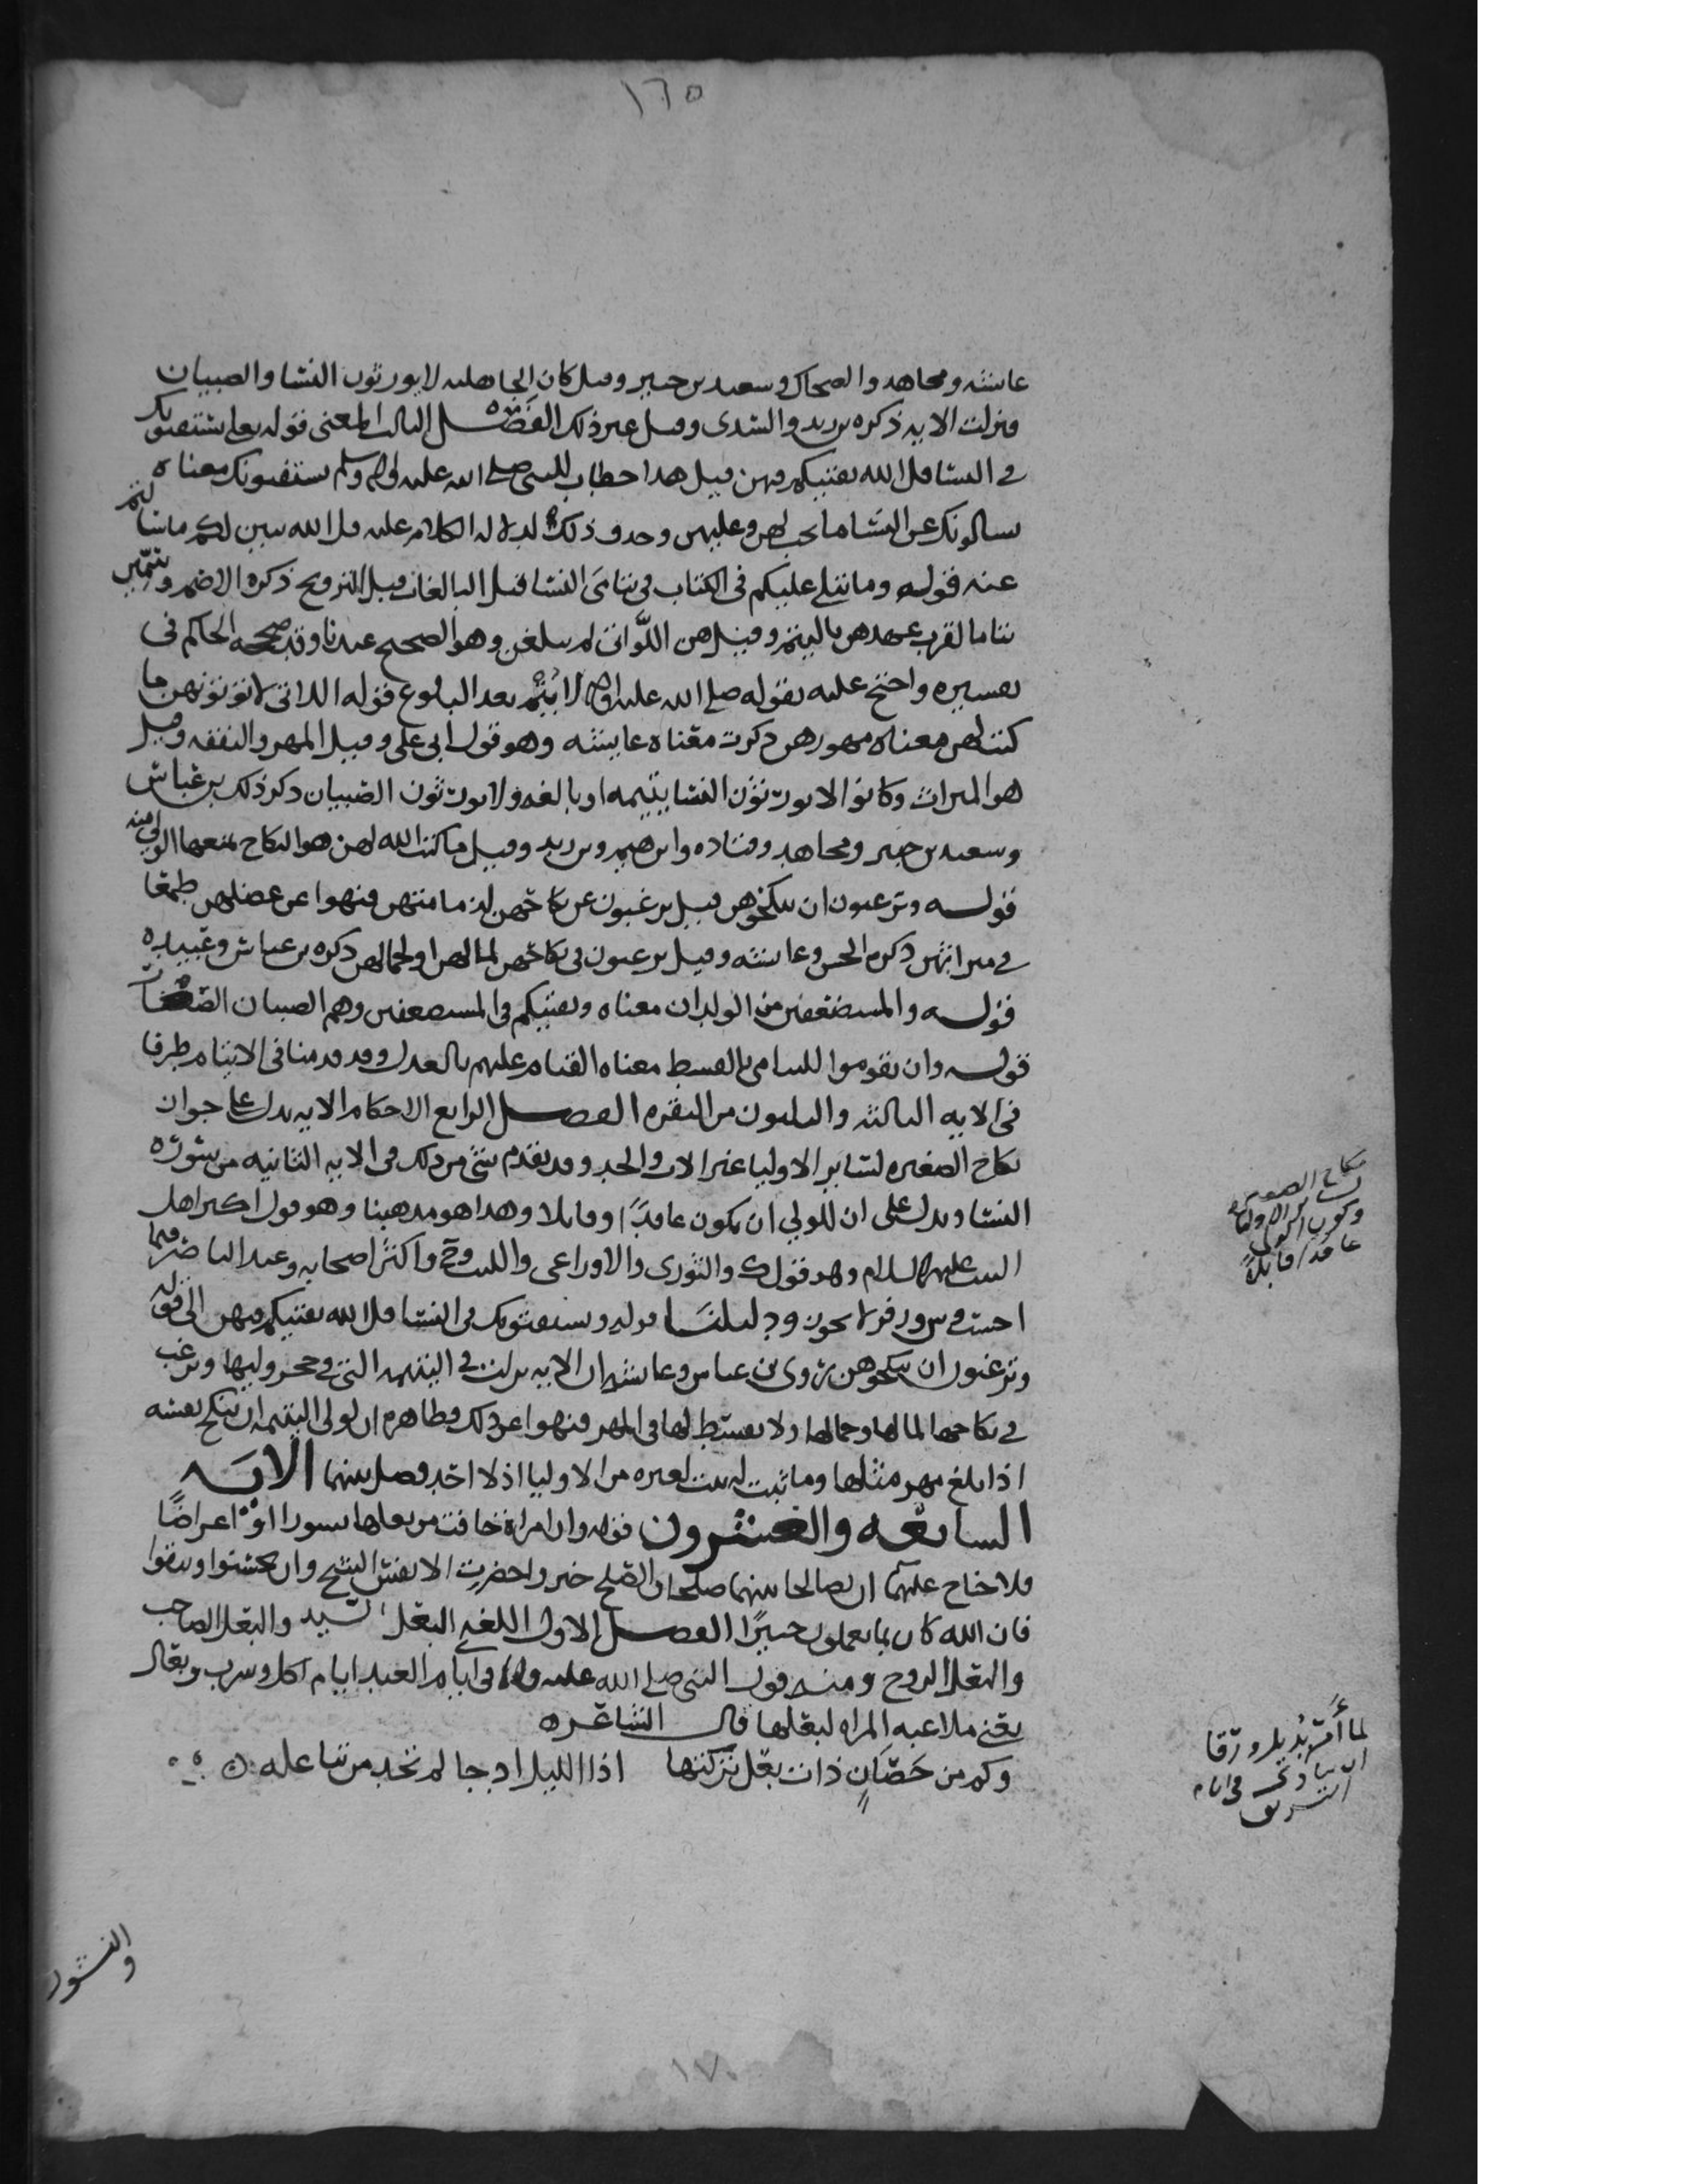 ١٦٥
عائشه ومجاهد والضحاك وسعيد بن جبير وقيل كان الجاهليه لا يورثون النسا والصبيان
فنزلت الايه ذكره بن زيد والسدى وقيل غير ذلك الفصل الثالث المعنى قوله تعلى يستفتونك
في النسا قل الله يفتيكم فيهن قيل هذا خطاب للنبي صلى الله عليه واله وسلم يستفتونك معناه
يسالونك عن النسا ما يجب لهن وعليهن وحذف ذلك لدلاله الكلام عليه قل الله يبين لكم ما سالتم
عنه قوله وما يتلى عليكم في الكتاب في يتامى النسا قيل البالغات قبل التزويج ذكره الاصم وسمين
يتاما لقرب عهدهن باليتم وقيل هن اللواتى لم يبلغن وهو الصحيح عندنا وقد صححه الحاكم في
تفسيره واحتج عليه بقوله صلى الله عليه واله لا يتم بعد البلوغ قوله اللاتى لا تؤتونهن ما
كتب لهن معناه مهورهن ذكرت معناه عايشه وهو قول ابى على وقيل المهر والنفقه وقيل
هو الميراث وكانوا لا يورثون النسا يتيمه او بالغه ولا يورثون الصبيان ذكر ذلك بن عباس
وسعيد بن جبير ومجاهد وقتاده وابرهيم وبن زيد وقيل ما كتب الله لهن هو النكاح يمنعها الولي منه
قوله وترغبون ان تنكحوهن قيل يرغبون عن نكاحهن لدمامتهن فنهوا عن عضلهن طمعا
في ميراثهن ذكره الحسن وعائشه وقيل يرغبون في نكاحهن لمالهن او لجمالهن ذكره بن عباس وعبيده
قوله والمستضعفين من الولدان معناه ويفتيكم في المستضعفين وهم الصبيان الضعفات
قوله وان تقوموا لليتامى بالقسط معناه القيام عليهم بالعدل وقد قدمنا في الايتام طرفا
في الايه الثالثه والثلثون من البقره الفصل الرابع الاحكام الايه تدل على جواز
نكاح الصغيره لساير الاوليا غير الاب والجد وقد تقدم شى من ذلك في الايه الثانيه من سوره
النسا وتدل على ان للولي ان يكون عاقدًا وقابلا وهذا هو مذهبنا وهو قول اكثر اهل
البيت عليهم السلام وهو قول ك والثورى والاوزاعى والليث وح واكثر اصحابه وعند الناصر فيما
لا يجوز ودليلنا قوله ويستفتونك في النسا قل الله يفتيكم فيهن الى قوله
وترغبون ان تنكحوهن روى بن عباس وعائشه ان الايه نزلت في اليتيمه التي في حجر وليها ويرغب
في نكاحها لمالها وجمالها ولا يقسط لها في المهر فنهوا عن ذلك وظاهره ان لولى اليتيمه ان ينكح نفسه
اذا بلغ مهر مثلها وما ثبت له ثبت لغيره من الاوليا اذ لا احد فصل بينهما الايه
السابعه والعشرون قوله وان امراة خافت من بعلها نشوزا او اعراضًا
فلا جناح عليهما ان يصالحا بينهما صلحا والصلح خير واحضرت الانفس الشح وان تحسنوا وتتقوا
فان الله كان بما تعملون خبيرًا الفصل الاول اللغه البعل السيد والبعل الصاحب
والبعل الزوج ومنه قول النبي صلى الله عليه واله في ايام العيد ايام اكل وشرب وبعال
يعنى ملاعبه المراه لبعلها قال الشاعر ه
وكم من حَصَانٍ ذات بعل تركتها اذا الليل ادجا لم تجد من تباعله
نكاح الصغيره
لساير الاوليا
وكون الولي
عاقدا قابلًا
لما أمر بُديل بن ورقا
ان ينادى في ايام
التشريق
والنشوز
١٧٠